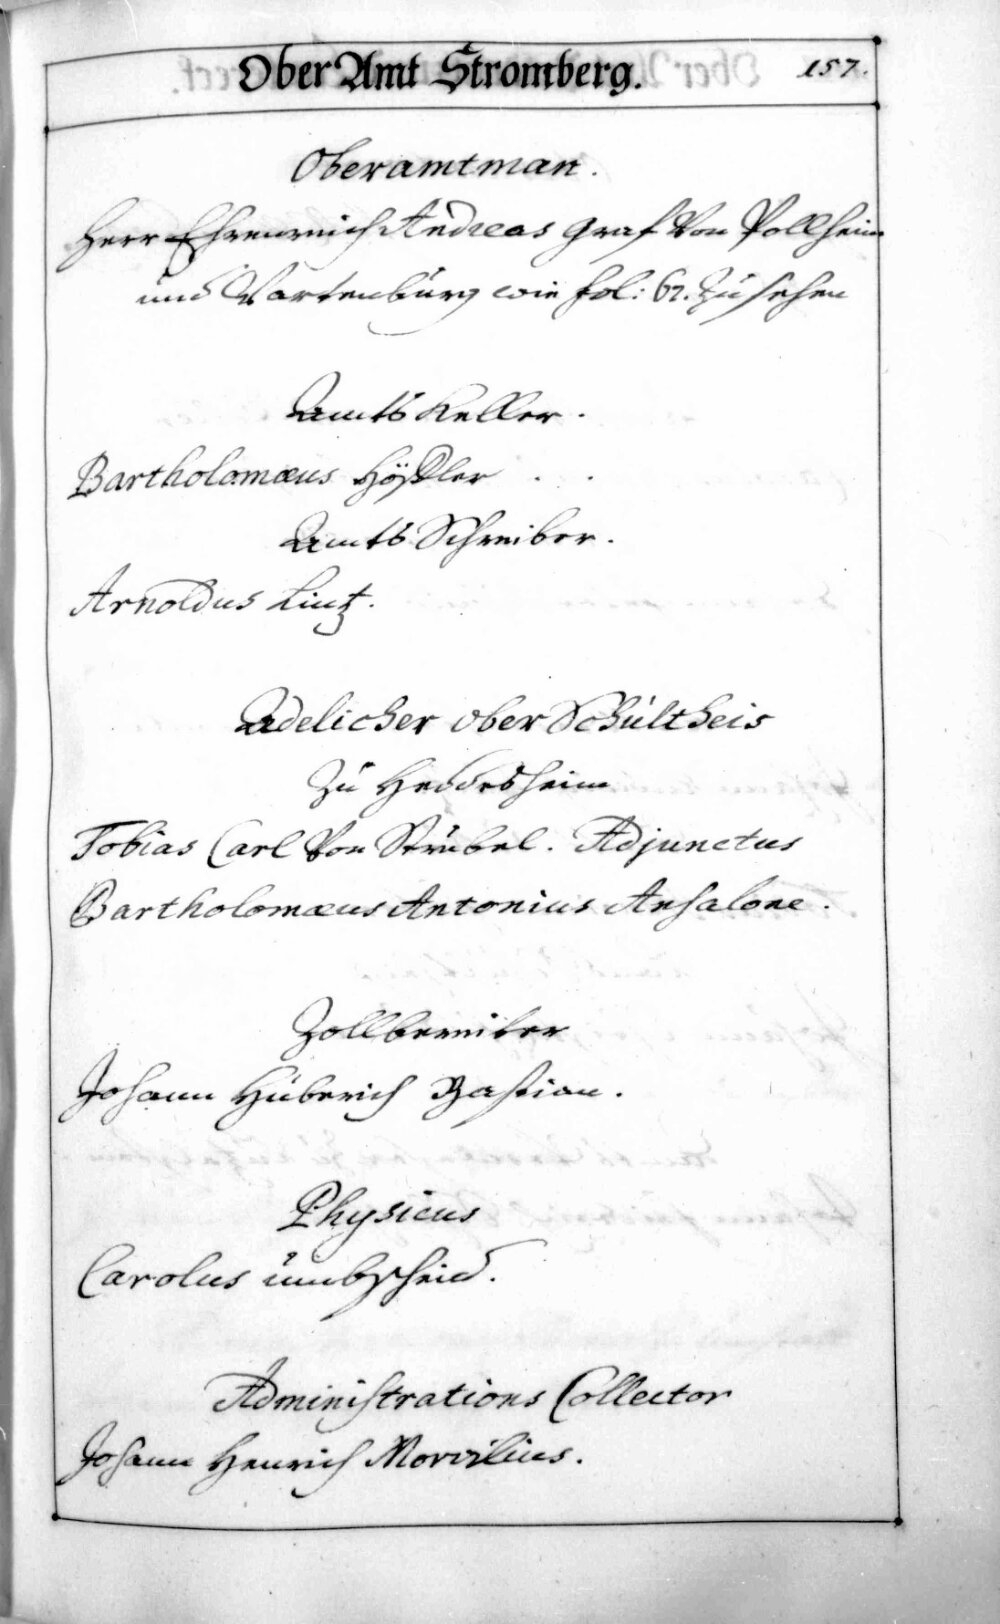 Ober Amt Stromberg.
157.
Oberamtman.
Herr Ehrenreich Andreas Graf Von Pollheim
und Wartenbürg wie fol: 67. Zu sehen
Ambts Keller.
Bartholomæus
Ambts Schreiber.
Arnoldus Lintz.
Adelicher ober Schültheis
Zu Heddesheim
Tobias Carl Von Strübel. Adjunctus
Bartholomæus Antonius Ansalone.
Zollbereiter
Johann Hüberich Bastian.
Physicus
Carolus Umbscheid.
Administrations Collector
Johann Henrich Morvilius.